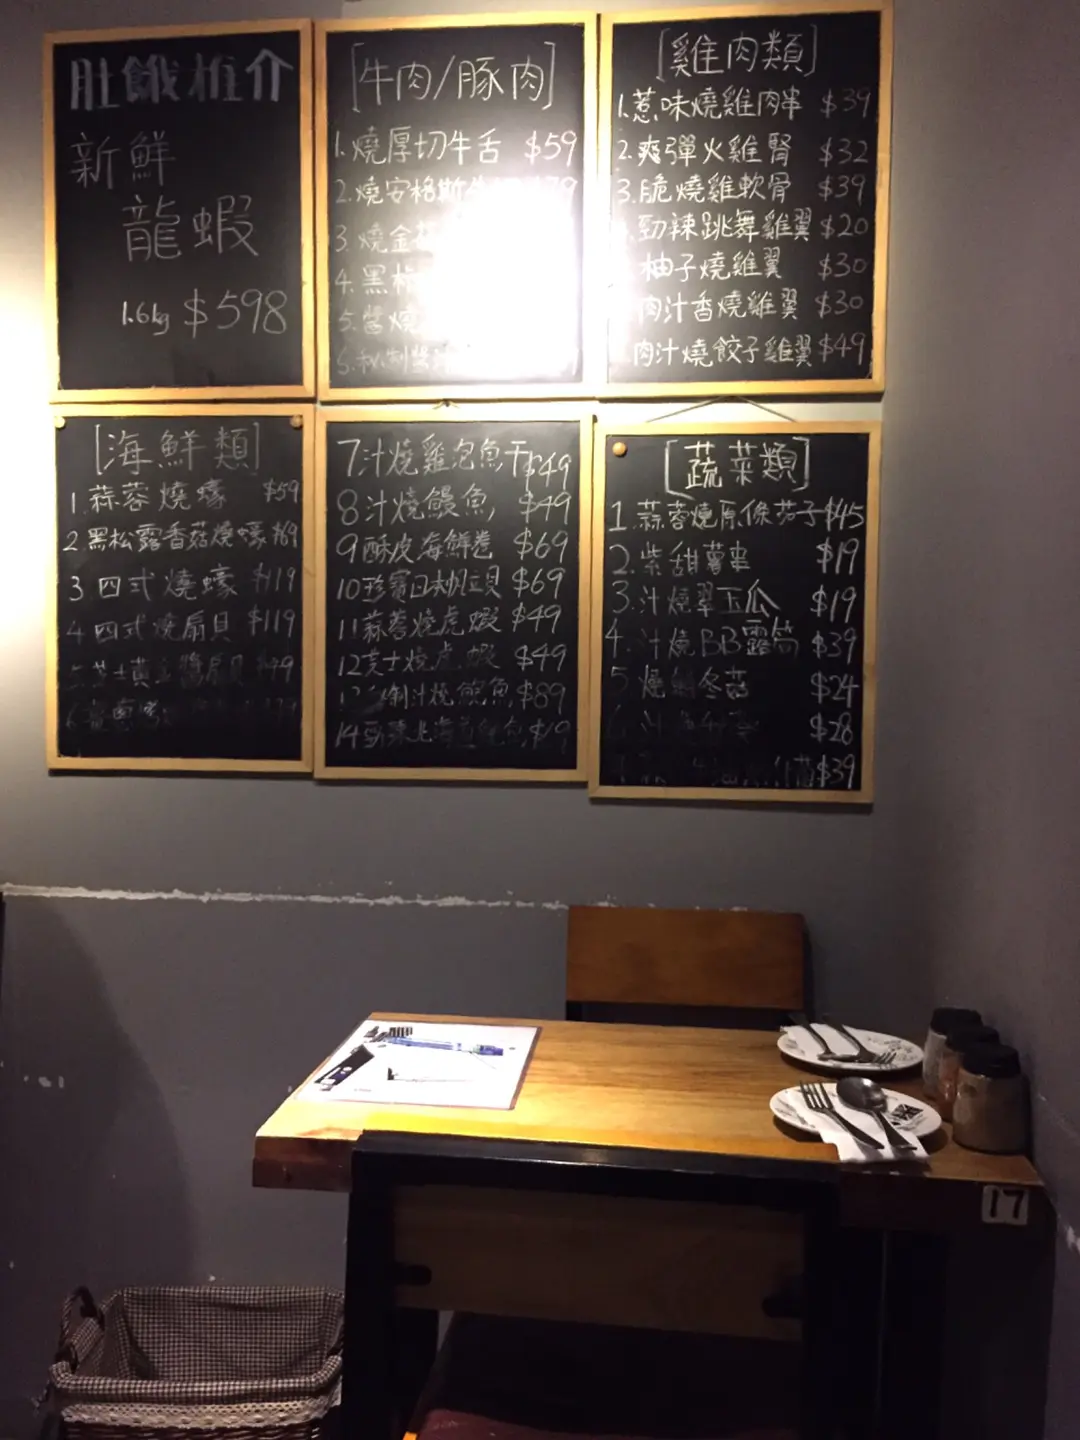 肚餓推介
新鮮
龍蝦
1.6kg $598
[牛肉/豚肉]
1.燒厚切牛舌 $59
2.燒安格斯
3.燒金
4.黑
5.醬燒
[雞肉類]
1.惹味燒雞肉串 $39
2.爽彈火雞腎 $32
3.脆燒雞軟骨 $39
勁辣跳舞雞翼 $20
柚子燒雞翼 $30
肉汁香燒雞翼 $30
肉汁燒餃子雞翼 $49
[海鮮類]
1.蒜蓉燒蠔 $59
2.黑松露香菇燒蠔 $69
3 四式燒蠔 $119
4 四式燒扇貝 $119
7汁燒雞泡魚干$49
8汁燒鰻魚 $49
9酥皮海鮮卷 $69
10珍寶日本帆立貝 $69
11蒜蓉燒虎蝦 $49
12芝士燒虎蝦 $49
汁燒鮑魚 $89
14 $19
[蔬菜類]
1.蒜蓉燒原條茄子$45
2.紫甜薯串 $19
3.汁燒翠玉瓜 $19
4.汁燒BB露筍 $39
5.燒鮮冬菇 $24
$28
$39
17